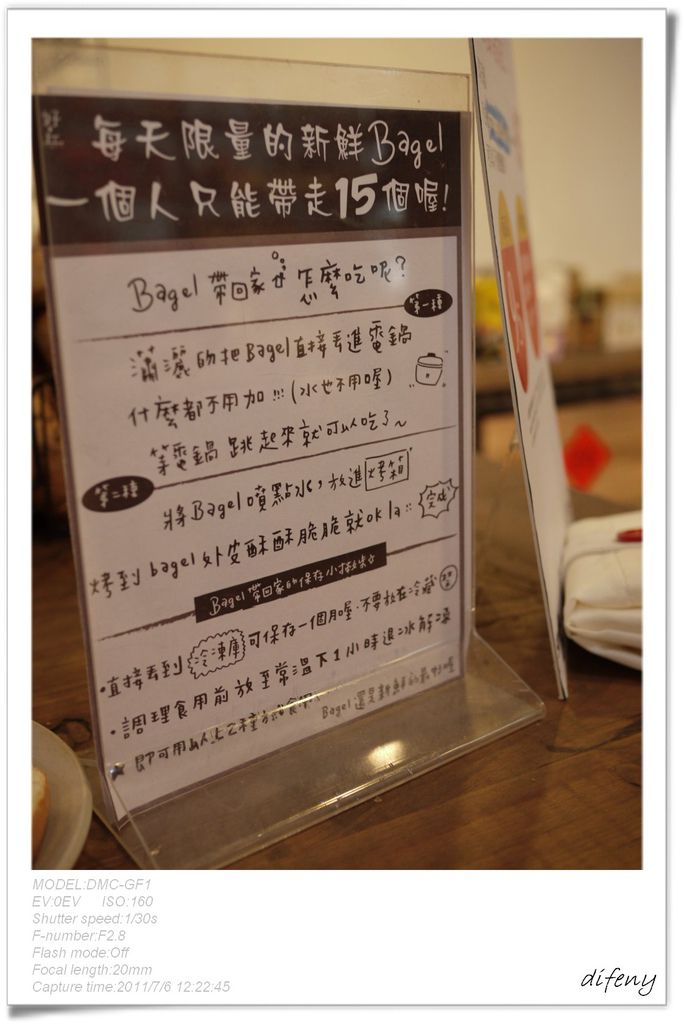 每天限量的新鮮Bagel
一個人只能帶走15個喔!
Bagel 帶回家 怎麼吃呢?
第一種
瀟灑的把Bagel直接丟進電鍋
什麼都不用加!!! (水也不用喔)
等電鍋跳起來就可以吃了~
第二種
將Bagel噴點水,放進烤箱
烤到bagel外皮酥酥脆脆就ok la!! 完成
Bagel帶回家的保存小
·直接丟到 冷凍庫 可保存一個月喔.不要放在冷藏
·調理食用前放至常溫下1小時退冰解凍
即可用以上2種方式食用
Bagel還是新鮮的最好喔
MODEL:DMC-GF1
EV:0EV ISO:160
Shutter speed:1/30s
F-number:F2.8
Flash mode:Off
Focal length:20mm
Capture time:2011/7/6 12:22:45
difeny